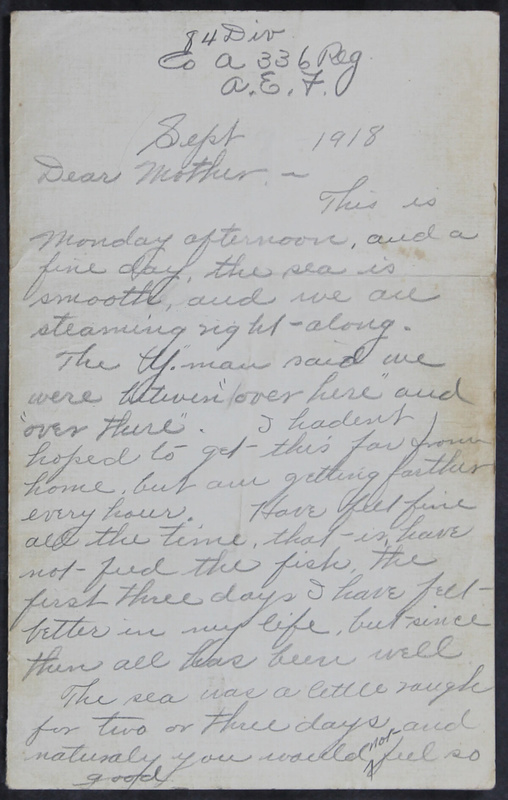 84 Div
Co A 336 Reg
A.E.F.
Sept 1918
Dear Mother. –
This is
Monday afternoon, and a
fine day, the sea is
smooth, and we are
steaming right-along.
The "Y" man said we
were betwen "over here" and
"over there". I hadent
hoped to get this far from
home, but am getting farther
every hour. Have felt fine
all the time, that-is, have
not-feed the fish, the
first three days I have felt-
better in my life, but since
then all has been well
The sea was a little rough
for two or three days, and
naturaly you would not- feel so
good